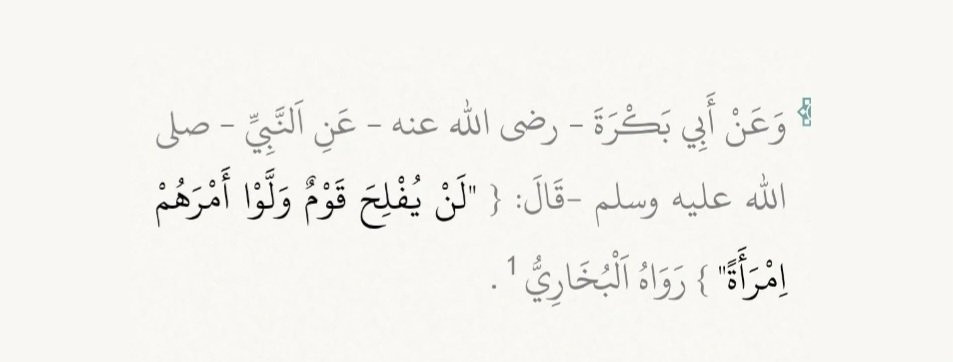 وَعَنْ أَبِي بَكْرَةَ - رضى الله عنه - عَنِ اَلنَّبِيِّ - صلى
الله عليه وسلم -قَالَ: { "لَنْ يُفْلِحَ قَوْمٌ وَلَّوْا أَمْرَهُمْ
اِمْرَأَةً" } رَوَاهُ اَلْبُخَارِيُّ 1 .